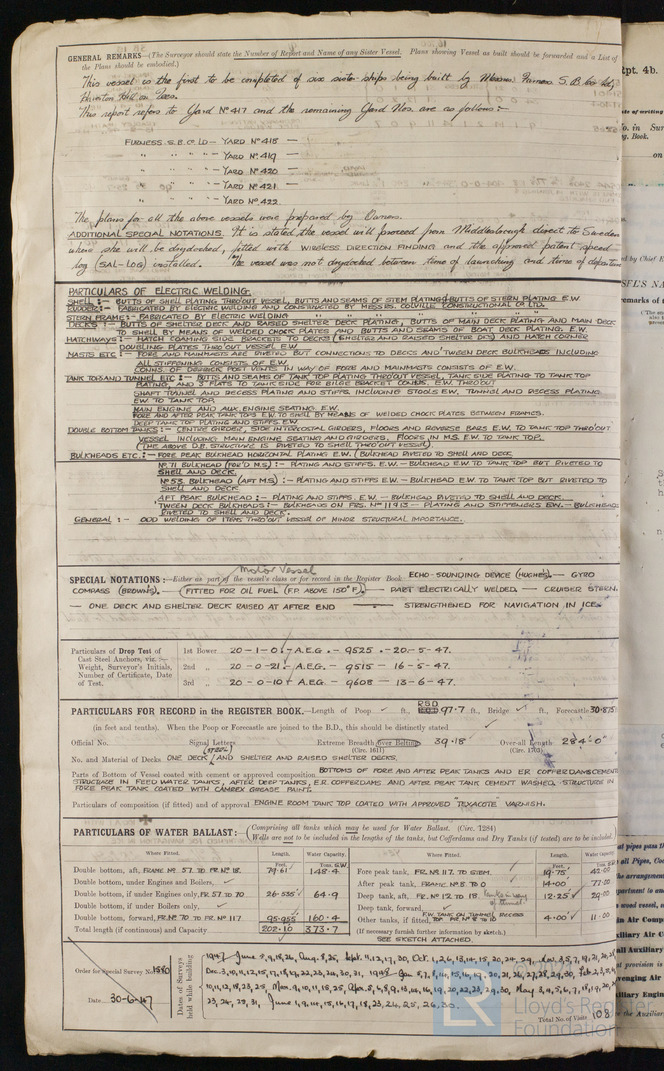 GENERAL REMARKS—(The Surveyor should state the Number of Report and Name of any Sister Vessel. Plans showing Vessel as built should be forwarded and a List of
the Plans should be embodied.)
This vessel is the first to be completed of six sister-ships being built by Messrs Furness S.B. Co Ltd,
Haverton Hill on Tees.
This report refers to Yard No 417 and the remaining Yard Nos. are as follows:-
FURNESS S.B. Co LD — YARD No 418 —
" " " " - YARD No 419 —
" " " " - YARD No 420 —
" " " " - YARD No 421 —
" " " " - YARD No 422
The plans for all the above vessels were prepared by Owners.
ADDITIONAL SPECIAL NOTATIONS. It is stated the vessel will proceed from Middlesbrough direct to Sweden
where she will be drydocked, fitted with WIRELESS DIRECTION FINDING and the approved patent speed
log (SAL-LOG) installed. The vessel was not drydocked between time of launching and time of departure
PARTICULARS OF ELECTRIC WELDING.
SHELL :— BUTTS OF SHELL PLATING THRO'OUT VESSEL, BUTTS AND SEAMS OF STEM PLATING & BUTTS OF STERN PLATING E.W
RUDDER:— FABRICATED BY ELECTRIC WELDING AND CONSTRUCTED BY MESSRS. COLVILLE CONSTRUCTIONAL CO LTD.
STERN FRAME:— FABRICATED BY ELECTRIC WELDING " " " " "
DECKS :— BUTTS OF SHELTER DECK AND RAISED SHELTER DECK PLATING, BUTTS OF MAIN DECK PLATING AND MAIN DECK
TO SHELL BY MEANS OF WELDED CHOCK PLATES AND BUTTS AND SEAMS OF BOAT DECK PLATING. E.W.
HATCHWAYS:— HATCH COAMING SIDE BRACKETS TO DECKS (SHELTER AND RAISED SHELTER DKS) AND HATCH CORNER
DOUBLING PLATES THRO'OUT VESSEL E.W
MASTS ETC :— FORE AND MAINMASTS ARE RIVETED BUT CONNECTIONS TO DECKS AND 'TWEEN DECK BULKHEADS INCLUDING
ALL STIFFENING CONSISTS OF E.W.
CONNS. OF DERRICK POST VENTS IN WAY OF FORE AND MAINMASTS CONSISTS OF E.W.
TANK TOP AND TUNNEL ETC :— BUTTS AND SEAMS OF TANK TOP PLATING THRO'OUT VESSEL, TANK SIDE PLATING TO TANK TOP
PLATING, AND 3 FLATS TO TANK SIDE FOR BILGE BRACKET CONNS. E.W. THRO'OUT
SHAFT TUNNEL AND RECESS PLATING AND STIFFS. INCLUDING STOOLS E.W. TUNNEL AND RECESS PLATING
E.W TO TANK TOP.
MAIN ENGINE AND AUX. ENGINE SEATING E.W.
FORE AND AFTER PEAK TANK TOPS E.W. TO SHELL BY MEANS OF WELDED CHOCK PLATES BETWEEN FRAMES.
DEEP TANK TOP PLATING AND STIFFS E.W
DOUBLE BOTTOM TANKS :— CENTRE GIRDER, SIDE INTERCOSTAL GIRDERS, FLOORS AND REVERSE BARS E.W. TO TANK TOP THRO'OUT
VESSEL INCLUDING MAIN ENGINE SEATING AND GIRDERS. FLOORS IN M.S. E.W. TO TANK TOP.
(THE ABOVE D.B. STRUCTURE IS RIVETED TO SHELL THRO'OUT VESSEL)
BULKHEADS ETC. :— FORE PEAK BULKHEAD HORIZONTAL PLATING E.W. (BULKHEAD RIVETED TO SHELL AND DECK.
No 71 BULKHEAD (FOR'D M.S) :— PLATING AND STIFFS. E.W. — BULKHEAD E.W. TO TANK TOP BUT RIVETED TO
SHELL AND DECK.
No 53. BULKHEAD (AFT M.S) :— PLATING AND STIFFS E.W — BULKHEAD E.W. TO TANK TOP BUT RIVETED TO
SHELL AND DECK.
AFT PEAK BULKHEAD :— PLATING AND STIFFS. E.W. — BULKHEAD RIVETED TO SHELL AND DECK.
'TWEEN DECK BULKHEADS :— BULKHEADS ON FRS. Nos 119 13 — PLATING AND STIFFENERS E.W. — BULKHEADS
RIVETED TO SHELL AND DECK.
GENERAL :— ODD WELDING OF ITEMS THRO'OUT VESSEL OF MINOR STRUCTURAL IMPORTANCE.
Motor Vessel
SPECIAL NOTATIONS:—Either as part of the vessel's class or for record in the Register Book. ECHO-SOUNDING DEVICE (HUGHES).— GYRO
COMPASS (BROWN'S). (FITTED FOR OIL FUEL (F.P. ABOVE 150° F) — PART ELECTRICALLY WELDED — CRUISER STERN.
— ONE DECK AND SHELTER DECK RAISED AT AFTER END — STRENGTHENED FOR NAVIGATION IN ICE
Particulars of Drop Test of
Cast Steel Anchors, viz.:—
Weight, Surveyor's Initials,
Number of Certificate, Date
of Test.
1st Bower 20-1-0.- A.E.G. - 9525 . - 20-5-47.
2nd " 20-0-21.- A.E.G. - 9515 - 16-5-47.
3rd " 20-0-10 - A.E.G. - 9608 - 13-6-47.
PARTICULARS FOR RECORD in the REGISTER BOOK.—Length of Poop ft., R.S.D 97.7 ft., Bridge ft., Forecastle 30.875
(in feet and tenths). When the Poop or Forecastle are joined to the B.D., this should be distinctly stated
Official No. Signal Letters Extreme Breadth over Belting 39.18' Over-all Length 284'.0"
(Circ. 1611) (Circ. 1703)
(STEEL)
No. and Material of Decks ONE DECK AND SHELTER AND RAISED SHELTER DECKS.
Parts of Bottom of Vessel coated with cement or approved composition BOTTOMS OF FORE AND AFTER PEAK TANKS AND ER COFFERDAMS CEMENT
STRUCTURE IN FEED WATER TANKS, AFTER DEEP TANKS, E.R. COFFERDAMS AND AFTER PEAK TANK CEMENT WASHED. STRUCTURE IN
FORE PEAK TANK COATED WITH CAMREX GREASE PAINT.
Particulars of composition (if fitted) and of approval ENGINE ROOM TANK TOP COATED WITH APPROVED "TEXACOTE" VARNISH.
PARTICULARS OF WATER BALLAST:—(Comprising all tanks which may be used for Water Ballast. (Circ. 1284)
Wells are not to be included in the lengths of the tanks, but Cofferdams and Dry Tanks (if tested) are to be included
Where Fitted. Length. Water Capacity. Where Fitted. Length. Water Capacity
Feet. Tons. S.W. Feet. Tons. S.W.
Double bottom, aft, FRAME No 57 TO FR No 18. 79.61' 148.4
Double bottom, under Engines and Boilers,
Double bottom, if under Engines only, FR. 57 TO 70 26.535' 64.9
Double bottom, if under Boilers only,
Double bottom, forward, FR. No 70 TO FR No 117 95.955 160.4
Total length (if continuous) and Capacity 202.10 373.7
Fore peak tank, FR. No 117. TO STEM. 19.75' 42.00
After peak tank, FRAME No 8 TO 0 14.00' 77.00
Deep tank, aft, FR. No 12 TO 18 12.25' 29.00
Deep tank, forward,
Other tanks, if fitted, F.W. TANK ON TUNNEL RECESS TOP FR. No 8 TO 10 4.00' 11.00
(If necessary furnish further information by sketch.)
SEE SKETCH ATTACHED.
Order for Special Survey No. 1580
Date 30-6-47
Dates of Surveys
held while building
Total No. of Visits 108
Lloyd's Register
Foundation